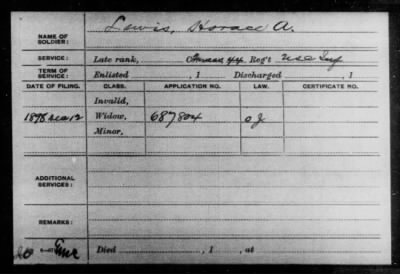 NAME OF SOLDIER: Lewis, Horace A.
SERVICE: Late rank, 44 Reg't USC Inf
TERM OF SERVICE: Enlisted , 1 Discharged , 1
DATE OF FILING. CLASS. APPLICATION NO. LAW. CERTIFICATE NO.
Invalid,
1898 12 Widow, 687804
Minor,
ADDITIONAL SERVICES:
REMARKS:
Died , 1 , at